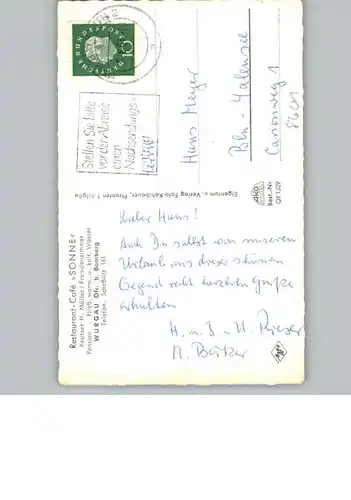 DEUTSCHE BUNDESPOST
10
Stellen Sie bitte
vor der Abreise
einen
Nachsendungs=
antrag
Hans Meyer
Bln - Halensee
86 CM
Restaurant-Café »SONNE«
Besitzer H. Müller, Fremdenzimmer
Pension - fließ. warm. u. kalt. Wasser
WURGAU Ofr. b. Bamberg
Telefon: Scheßlitz 161
Eigentum u. Verlag Foto-Kohlbauer, Pfronten i. Allgäu
Best.-Nr.
Lieber Hans!
Auch Du sollst von unserem
Urlaub aus dieser schönen
Gegend recht herzliche Grüße
erhalten
H. u. J - H. Rieger
M. Bärker
Agfa